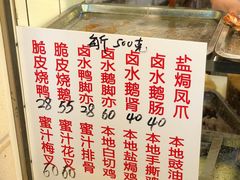 每斤 500克
脆皮烧鸭
28
脆皮烧鹅
55
卤水鸭脚亦
28
卤水鹅脚亦
60
卤水鹅肾
40
卤水鹅肠
40
盐焗凤爪
蜜汁梅叉
60
蜜汁花叉
60
蜜汁排骨
本地白切鸡
本地盐焗鸡
本地手撕
本地豉油